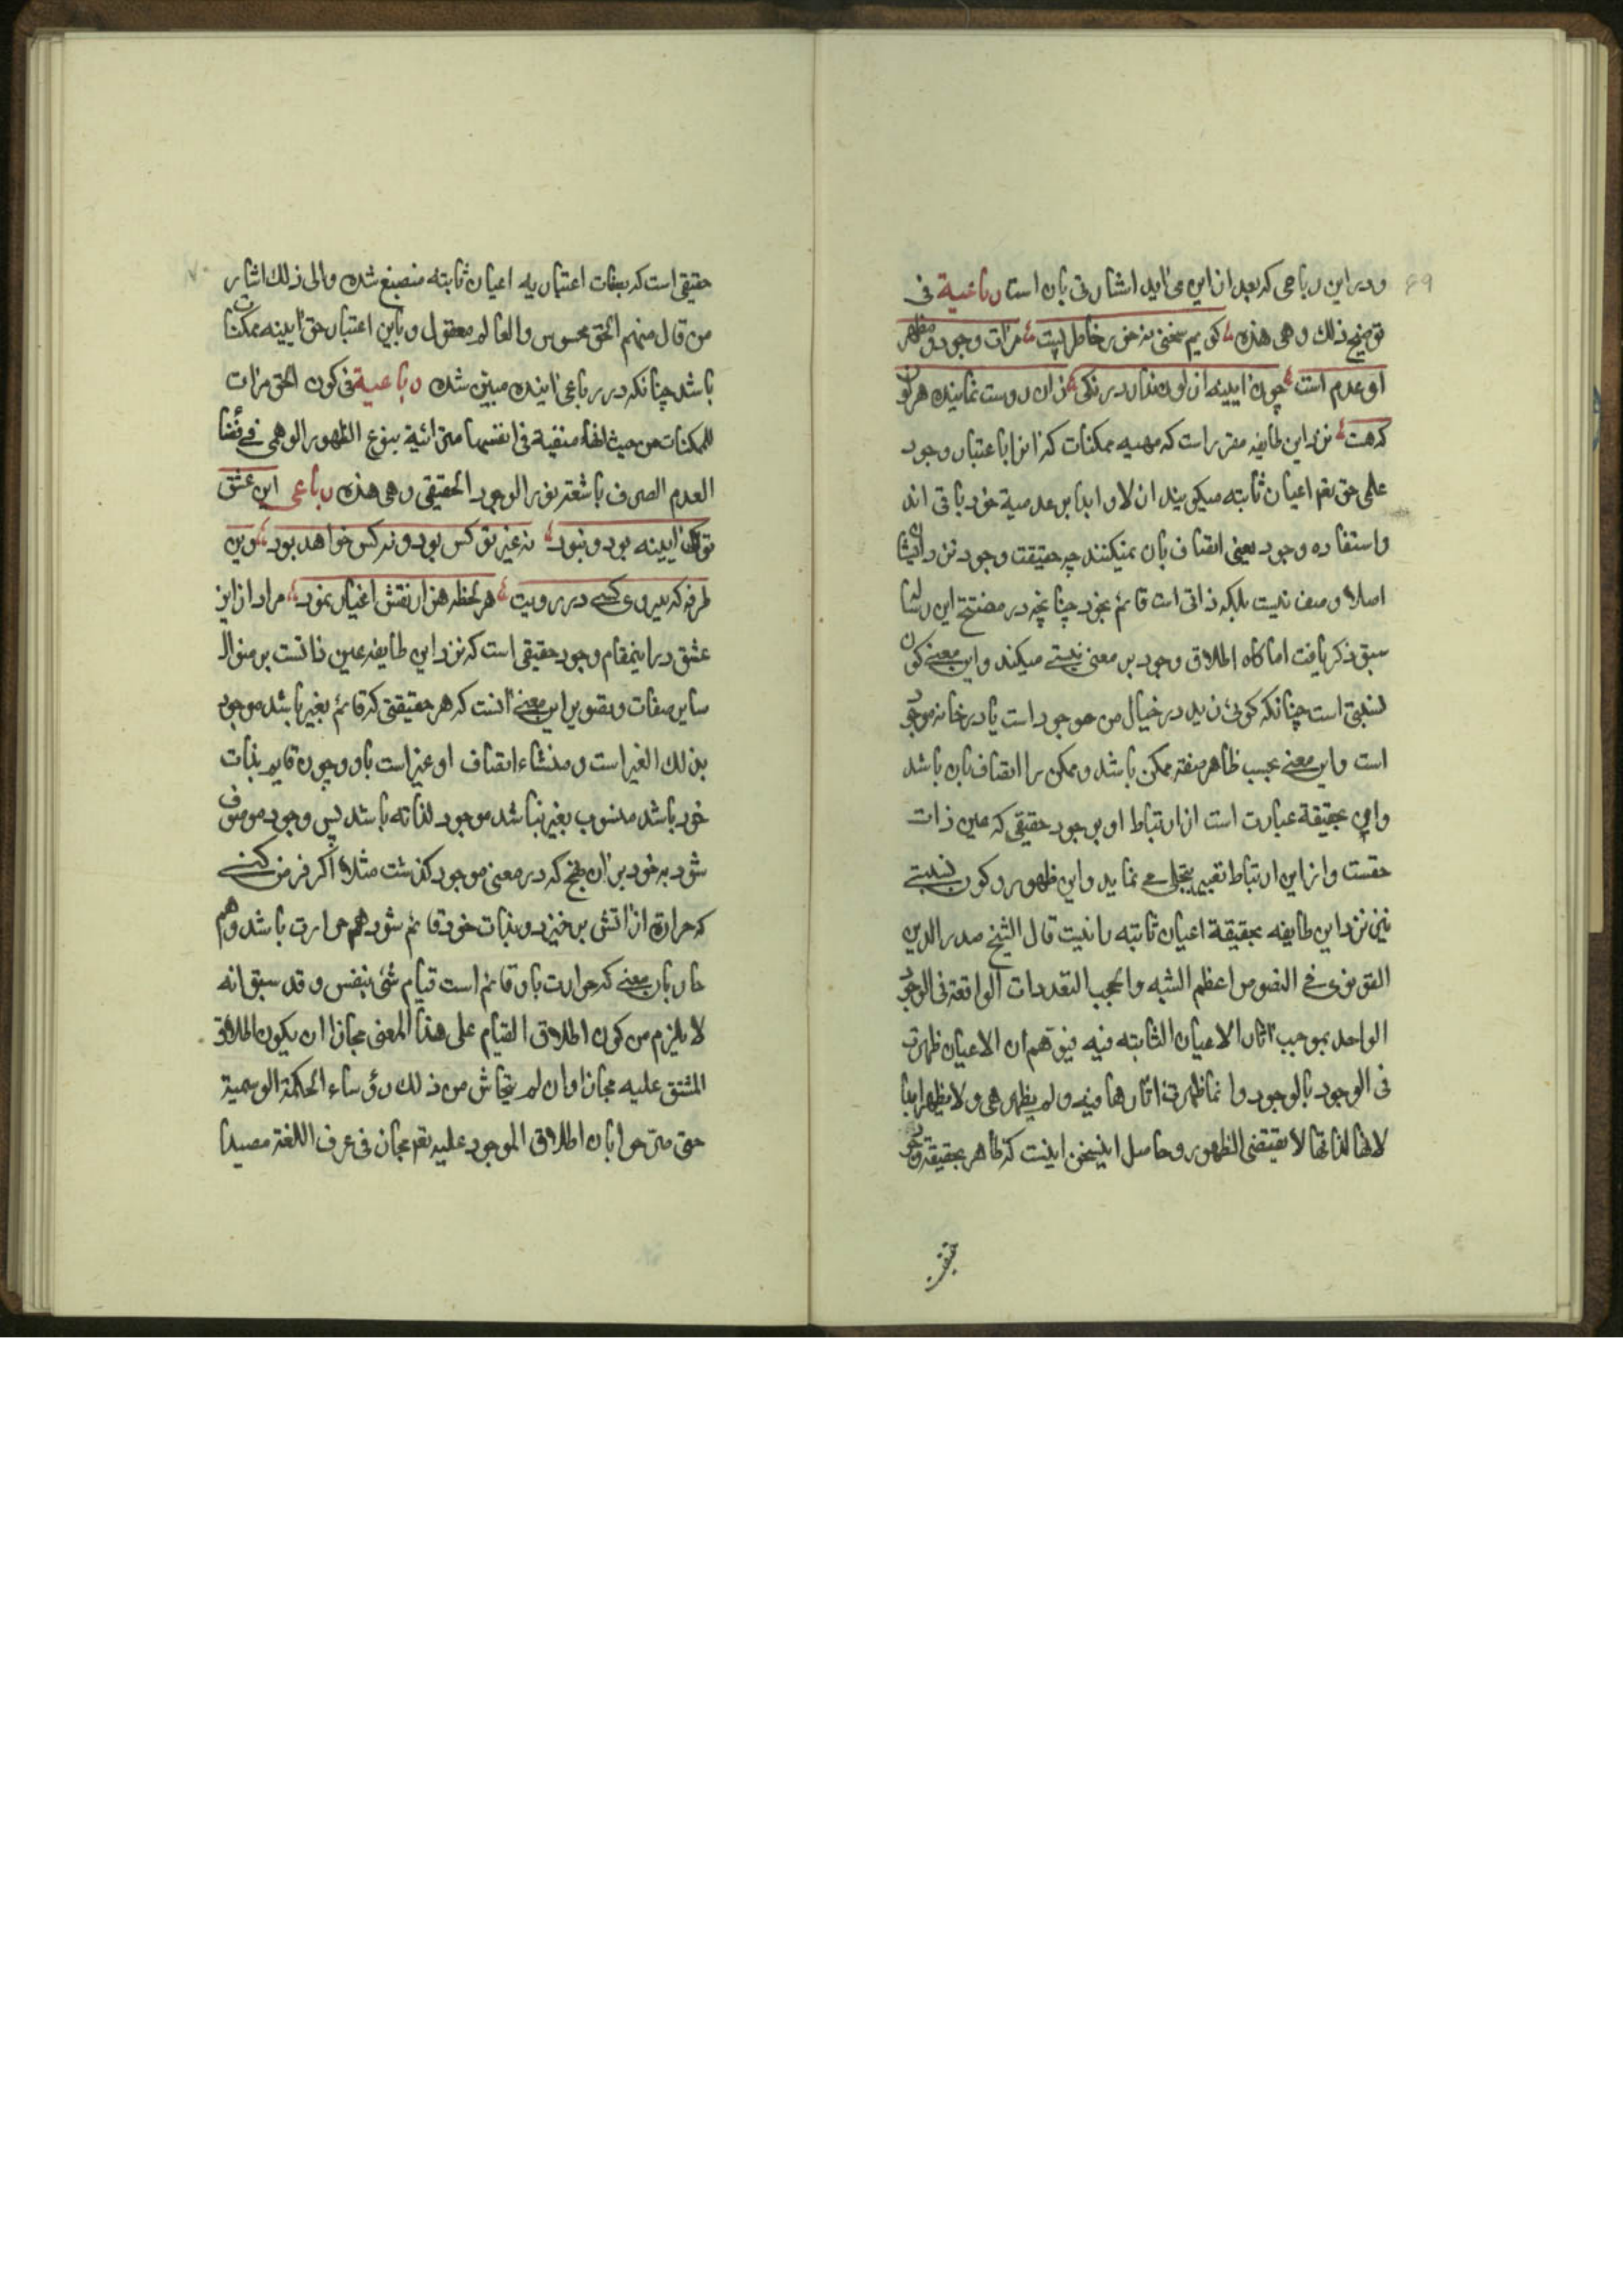 ۶۹
ودر این رباعی که بعد ازین می آید اشارتی بان است رباعیة فی
توضیح ذلك وهی هذه کویم سخنی نه خرخاطر مرات وجود ومظهر
او عدم است چون آیینه از لون ندارد رنکی زان روست نماینده هر لون
که هست نزد این طایفه مقرر است که مهیه ممکنات که انرا باعتبار وجود
علمی حق بقم اعیان ثابته میکویند ازلا وابدا بر عدمیة خود باقی اند
واستفاده وجود بمعنی اتصاف بان نمیکنند چه حقیقت وجود نزد ایشا
اصلا وصف نیست بلکه ذاتی است قائم بخود چنانچه در مفتتح این رسا
سبق ذکر یافت اما کاه اطلاق وجود بر معنی نسبتی میکند واین معنی کون
نسبتی است چنانکه کوئی زید در خیال من موجود است یا در خانه موجود
است واین معنی بحسب ظاهر صفة ممکن باشد وممکن را اتصاف بان باشد
واین بحقیقة عبارت است از ارتباط او بوجود حقیقی که عین ذات
حقست واز این ارتباط تعبیر بتجلی می نماید واین ظهور وکون نسبتی
نیز نزد این طایفه بحقیقة اعیان ثابته را نیست قال الشیخ صدر الدین
القونوی فی النصوص اعظم الشبه والحجب التعددات الواقعة فی الوجود
الواحد بموجب اثار الاعیان الثابته فیه فیتوهم ان الاعیان ظهرت
فی الوجود بالوجود وانما ظهرت اثارها فیه ولم یظهر هی ولا یظهر ابدا
لانها لذاتها لا یقتضی الظهور وحاصل اینسخن اینست که ظاهر بحقیقة وجود
حقیقی
۷۰
حقیقی است که بصفات اعتباریه اعیان ثابته منصبغ شده والی ذلك اشار
من قال منهم الحق محسوس والعالم معقول وباین اعتبار حق آیینه ممکنات
باشد چنانکه در رباعی آینده مبین شده رباعیة فی کون الحق مرات
للممکنات من حیث انها منفیة فی انفسها مترائیة بنوع الظهور الوهمی فی فضا
العدم الصرف باشعة نور الوجود الحقیقی وهی هذه رباعی این عشق
توکان آیینه بود ونبود نه غیر تو کس بود ونه کس خواهد بود وین
طرفه که بیروی کسی در رویت هر لحظه هزار نقش اغیار نمود مراد از این
عشق در اینمقام وجود حقیقی است که نزد این طایفه عین ذاتست بر منوال
سایر صفات وتصویر این معنی انست که هر حقیقتی که قائم بغیر باشد موجود
بذلك الغیر است ومنشاء اتصاف او غیر است باو وچون قایم بذات
خود باشد منسوب بغیر نباشد موجود لذاته باشد پس وجود موصوف
شود به خود بر ان نهج که در معنی موجود کذشت مثلا اکر فرض کنی
که حرارة از اتش بر خیزد وبذات خود قائم شود هم حرارت باشد وهم
حار بان معنی که حرارت باو قائم است قیام شئ بنفس وقد سبق انه
لا یلزم من کون اطلاق القیام علی هذا المعنی مجازا ان یکون اطلاق
المشتق علیه مجازا وان لم یتحاش من ذلك رؤساء الحکمة الرسمیة
حتی صرحوا بان اطلاق الموجود علیه تعم مجاز فی عرف اللغة مصیرا